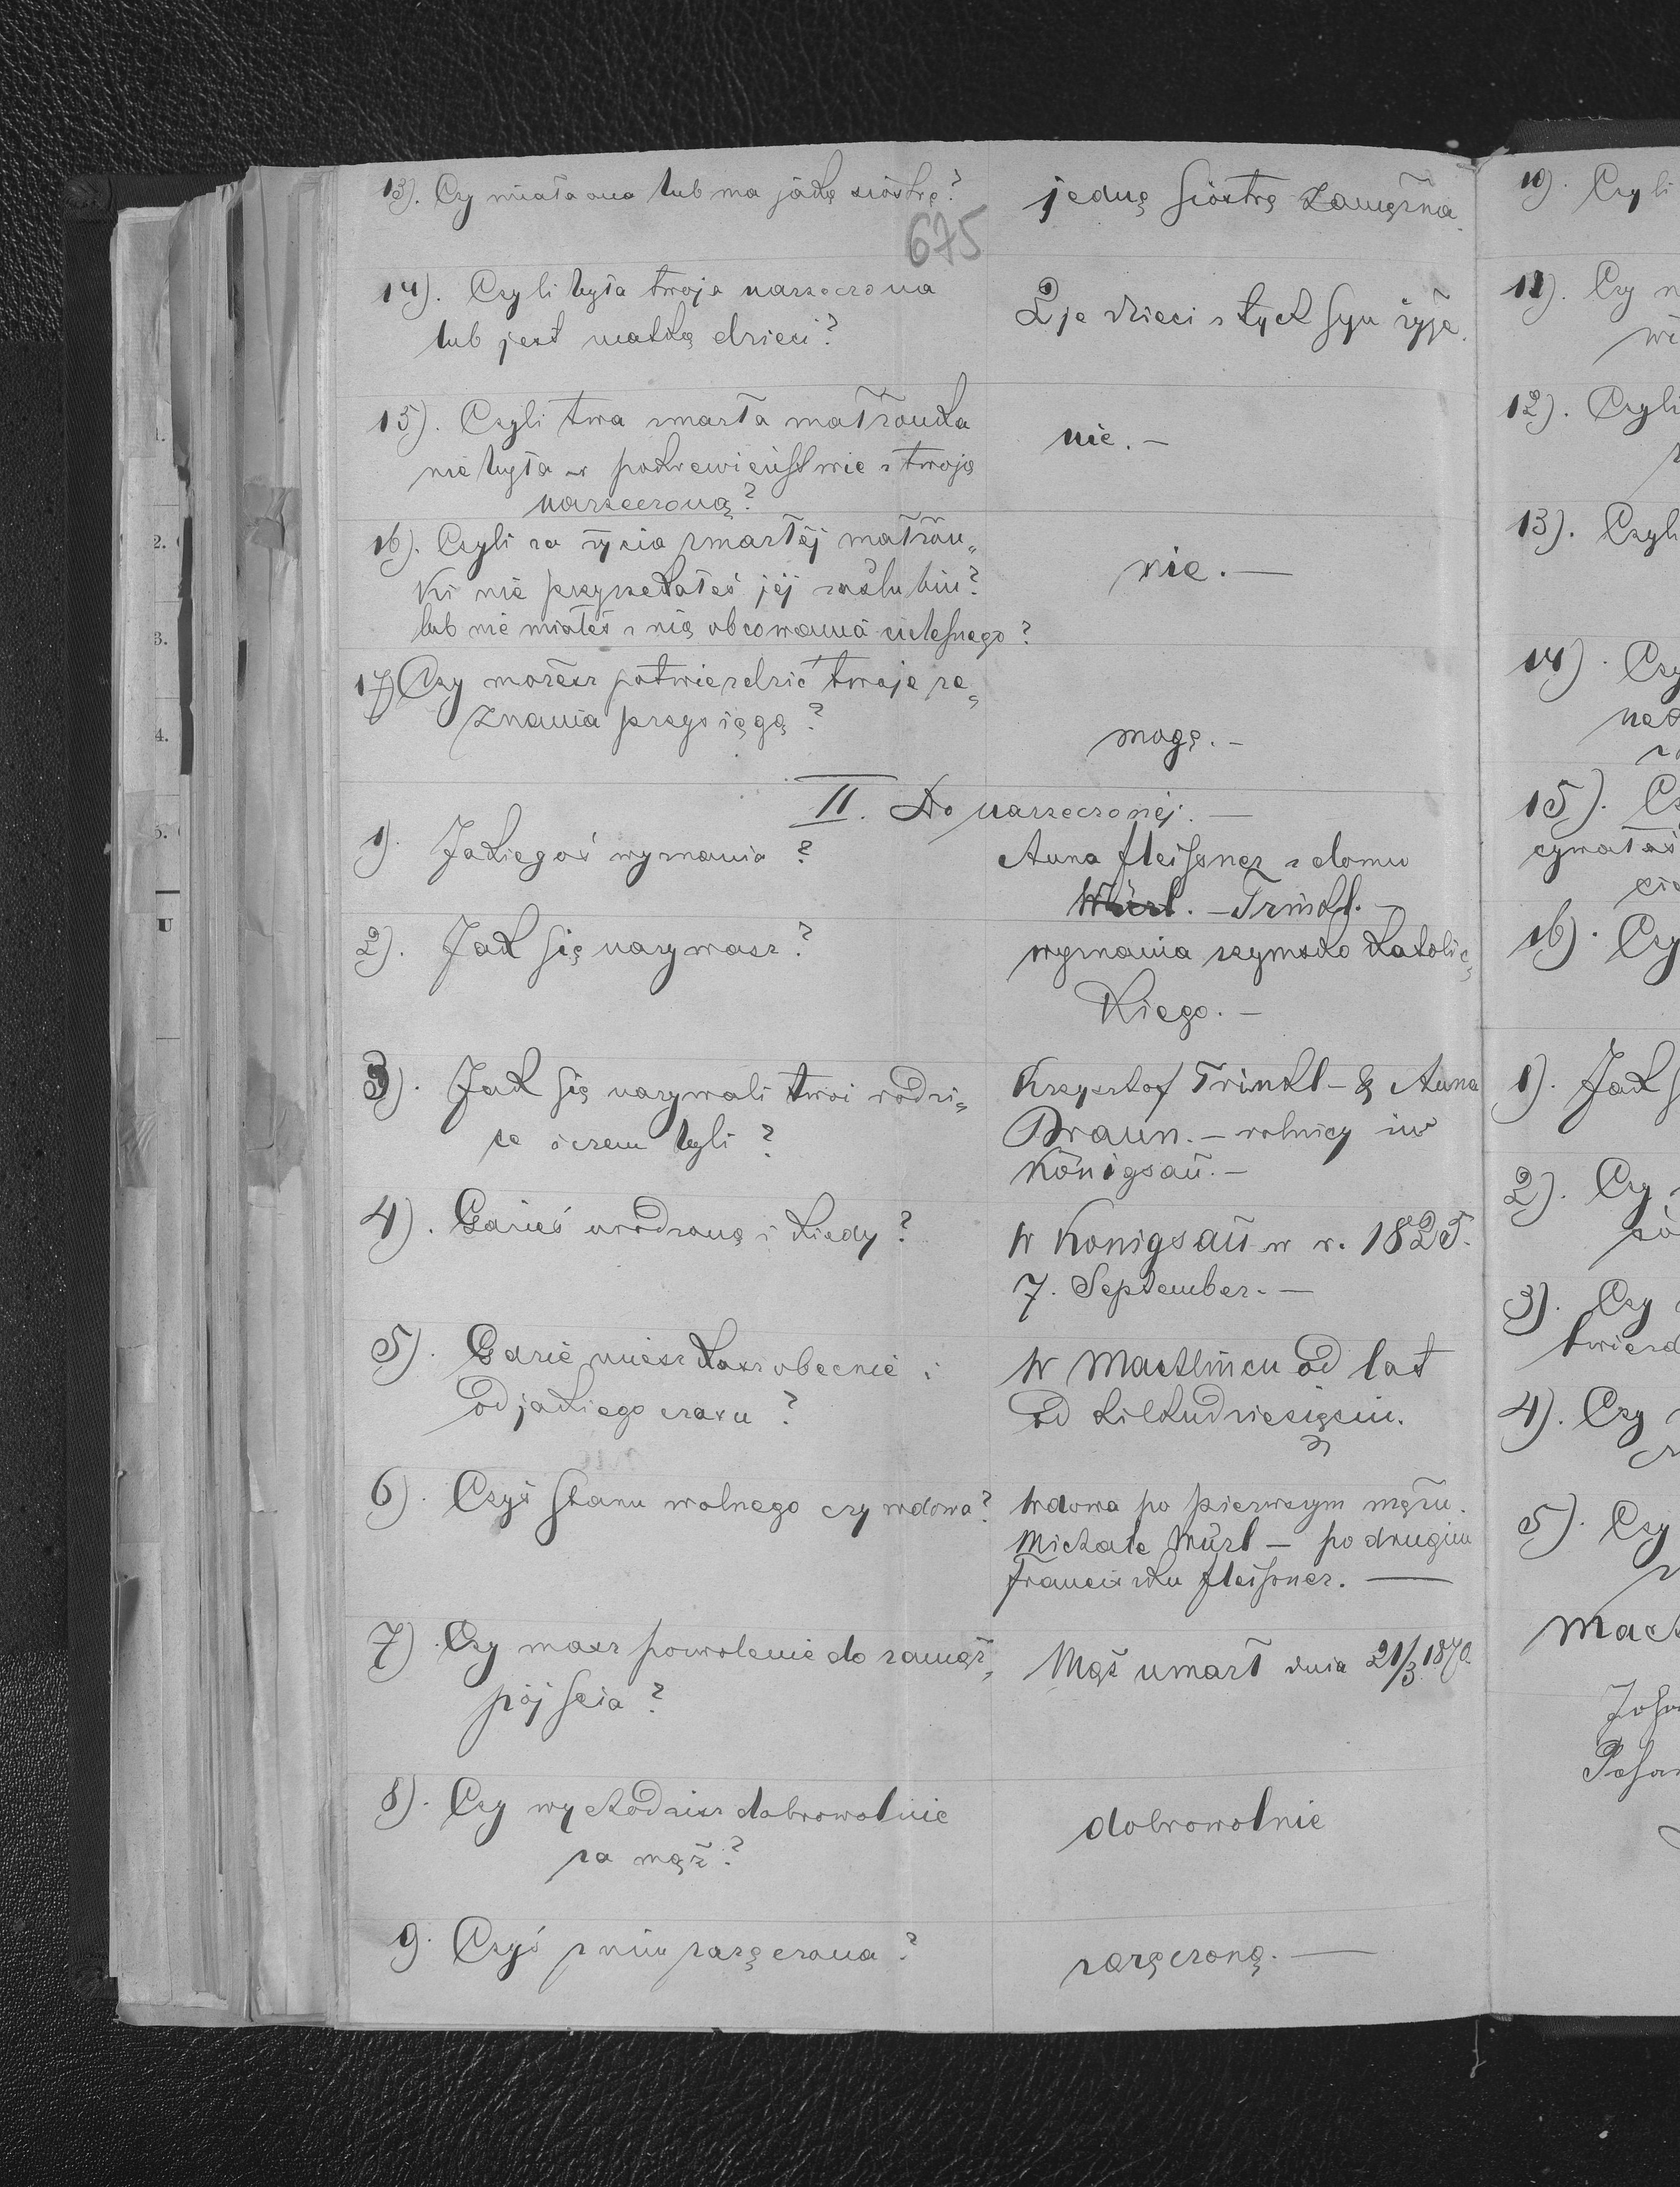 13). Czy miała ona lub ma jaką siostrę?
jedną siostrę zamężna.
675
14). Czyli była twoja narzeczona
lub jest matką dzieci?
2je dzieci z tych syn żyje.
15). Czyli twa zmarła małżonka
nie była w pokrewieństwie z twoją
narzeczoną?
nie. —
16). Czyli za życia zmarłéj małżon„
ki nie przyrzekałeś jéj zaślubin?
lub nie miałeś z nią obcowania cielesnego?
nie. —
17) Czy możesz potwierdzić twoje ze„
znania przysięgą?
mogę. —
II. Do narzeczonéj. —
1). Jakiegoś wyznania?
Anna Fleissner z domu
Würl. — Trinkl. —
2). Jak się nazywasz?
wyznania rzymsko katolic„
kiego. —
3). Jak się nazywali twoi rodzi„
ce i czem byli?
Krzysztof Trinkl — & Anna
Braun. — rolnicy in
Königsaü. —
4). Gdzieś urodzoną i kiedy?
W Konigsaü w r. 1825.
7. September. —
5). Gdzie mieszkasz obecnie i
od jakiego czasu?
W Machlincu od lat
od kilkudziesięciu.
6). Czyś stanu wolnego czy wdowa?
Wdowa po pierwszym mężu.
Michale Würl — po drugim
Franciszku Fleissner. —
7) Czy masz pozwolenie do zamęż„
pójścia?
Mąż umarł dnia 21/3 1870.
8). Czy wychodzisz dobrowolnie
za mąż?
dobrowolnie
9. Czyś z nim zaręczona?
zaręczoną. —
10). Czyli
11). Czy
12). Czyli
13). Czyli
14). Czy
15).
16). Czy
1). Jak
2). Czy
3). Czy
twierd
4). Czy
5). Czy
Mach